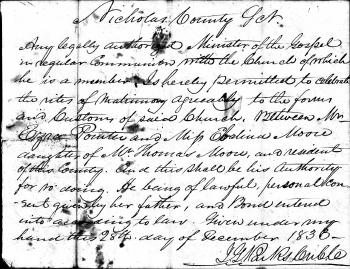 Nicholas County Sct.
Any legally authorized Minister of the Gospel
in regular Communion with the Church of which
he is a member. Is hereby permitted to celebrate
the rites of Matrimony agreeably to the forms
and Customs of said Church. Between Mr
Pointer and Miss Moore
daughter of Mr. Thomas Moore, and resident
of this County. And this shall be his Authority
for so doing. He being of lawful, personal con-
sent given by her father, and Bond entered
into according to law. Given under my
hand this 28th day of December 1836